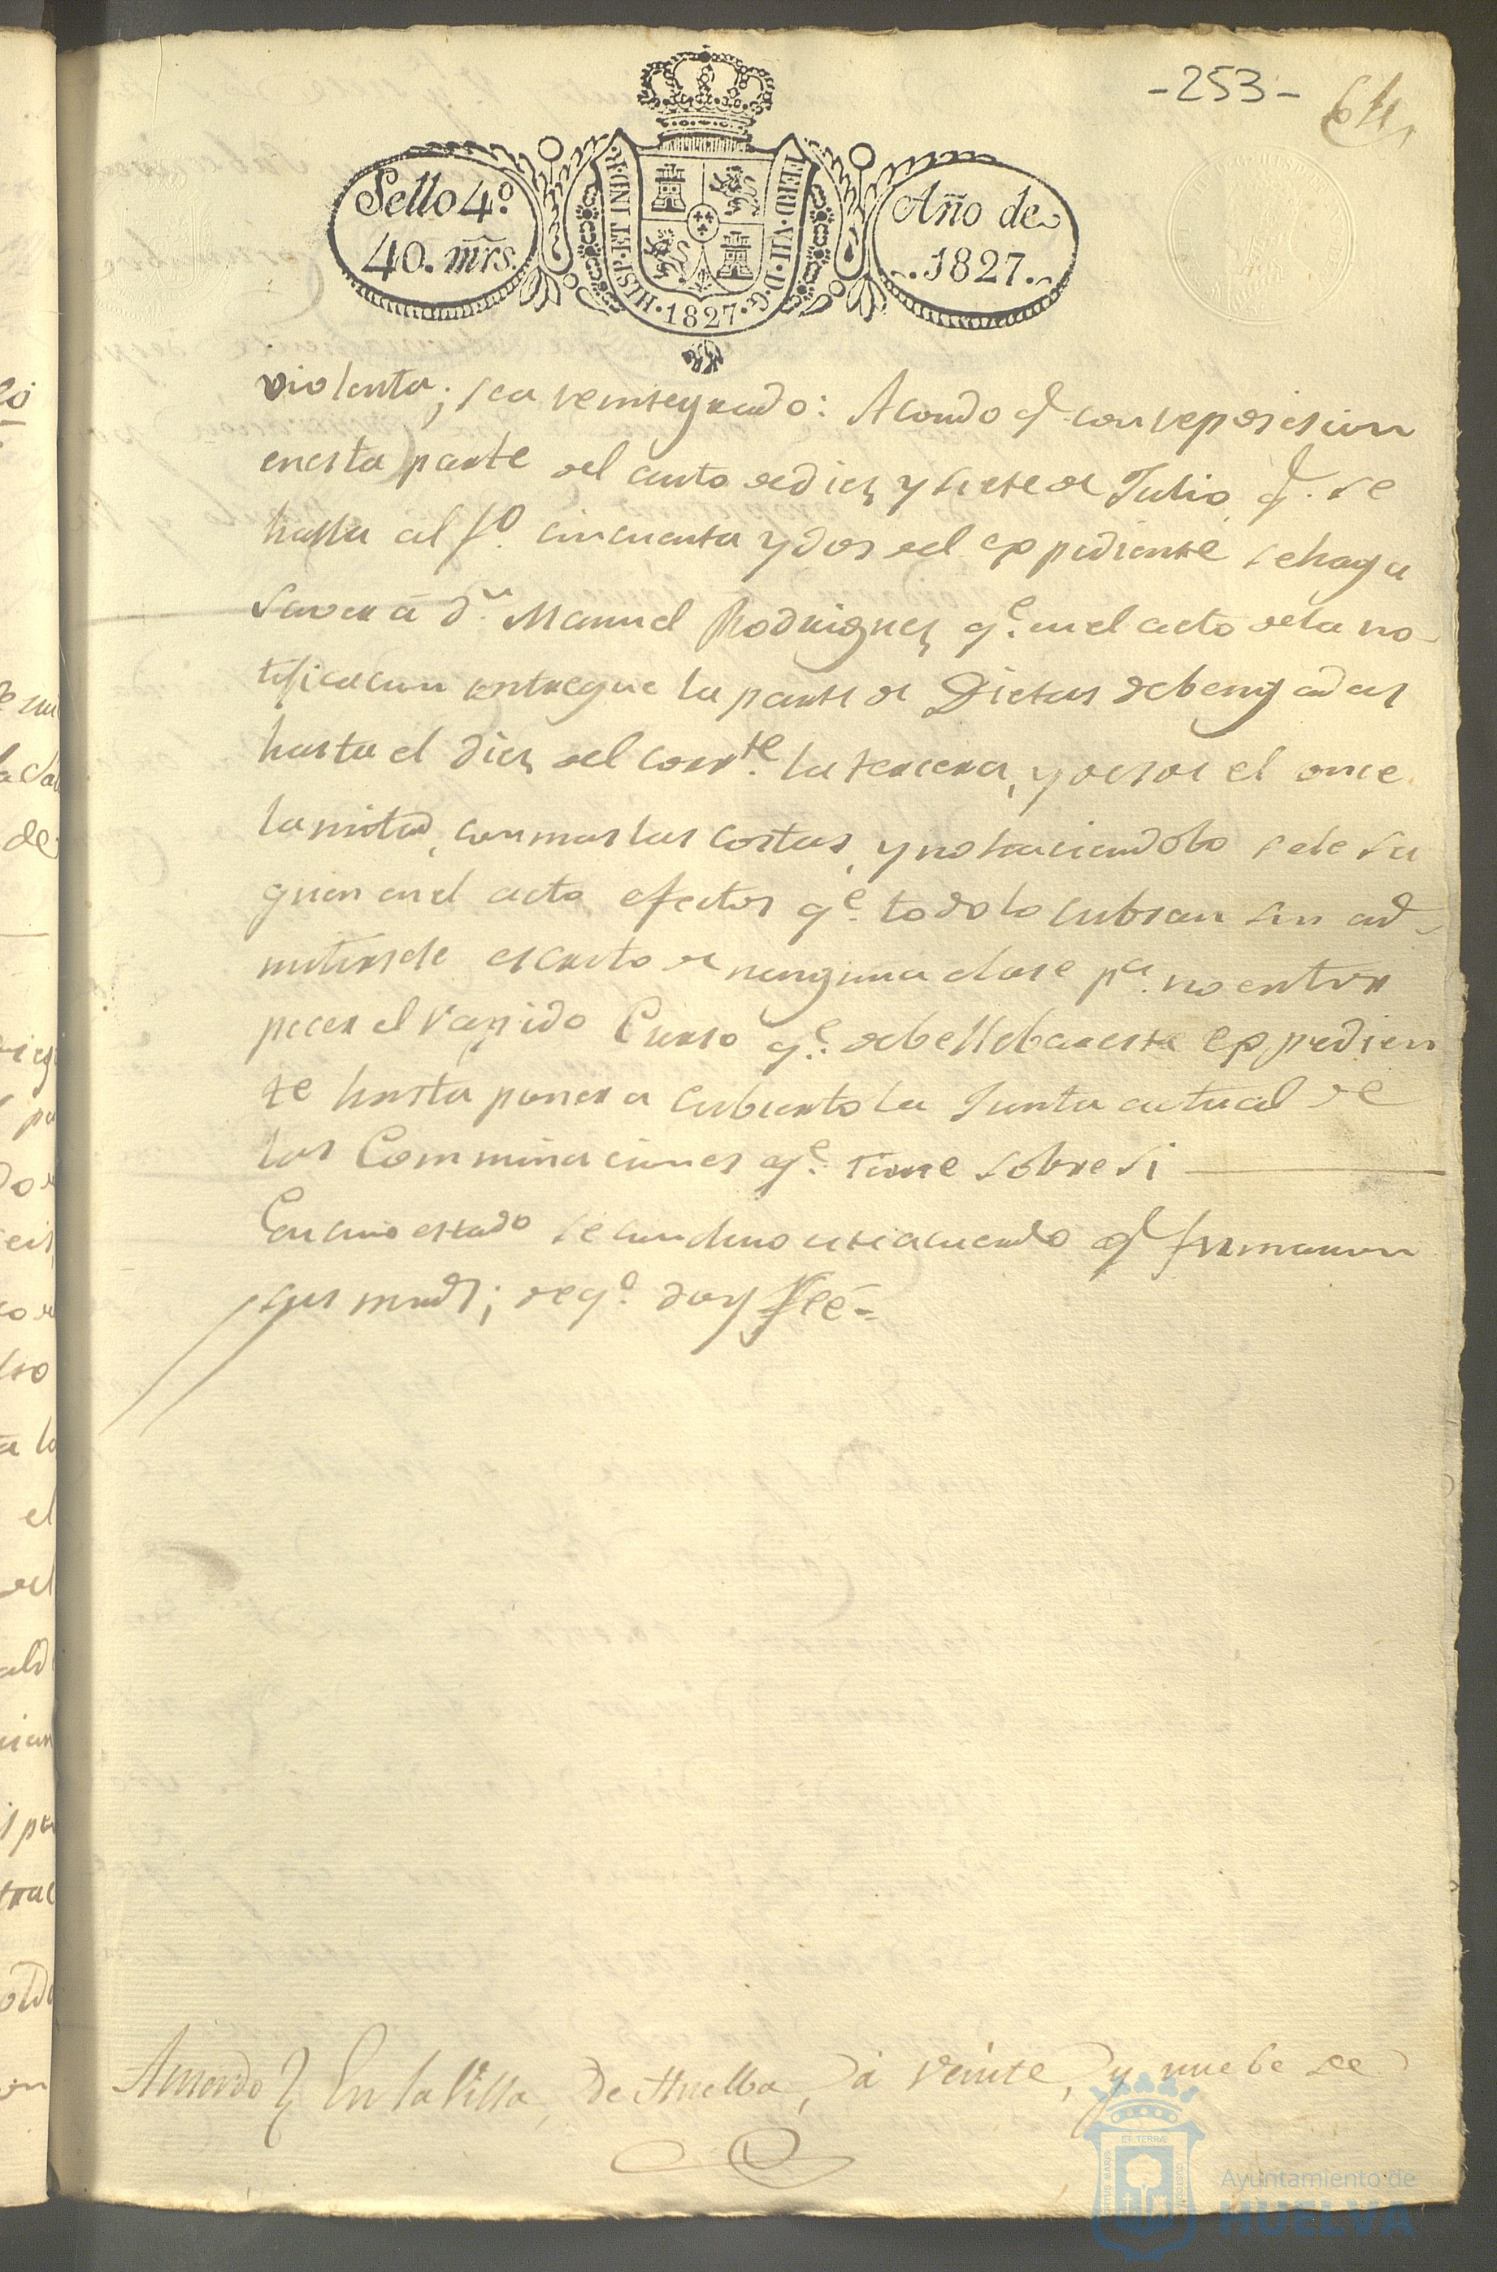 -253- 64,
Sello 4º.
40. mrs.
HISP. ET IND. R.
FERD. VII. D. G.
1827
Año de
1827.
violenta; sea reintegrado: Acordo q.e con reposicion
en esta parte del auto de diez y siete de Julio q.e se
halla al f.º cincuenta y dos del expediente se haga
saver a d.n Manuel Rodriguez q.e en el acto de la no-
tificacion entregue la parte de Dietas debengadas
hasta el diez del corr.te la tercera, y desde el once
la mitad, con mas las costas, y no haciendolo se le sa
quen en el acto efectos q.e todo lo cubran sin ad-
mitirsele escrito de ninguna clase p.a no entor
pecer el rapido Curso q.e debe llebar este expedien
te hasta poner a cubierto la Junta actual de
las Comminaciones q.e tiene sobre si
En cuio estado se concluio este acuerdo q.e firmaron
sus mrds; de q.º doy feé=
Acuerdo En la Villa, de Huelba, a veinte, y nuebe de
Ayuntamiento de
HUELVA